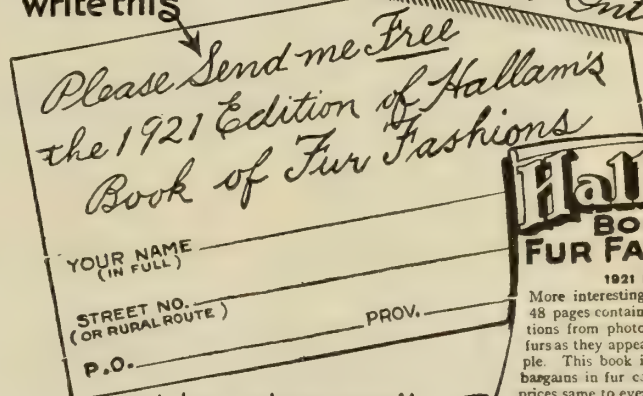 write this
Please Send me Free
the 1921 Edition of Hallam's
Book of Fur Fashions
YOUR NAME
(IN FULL)
STREET NO.
(OR RURAL ROUTE)
P.O. PROV.
Hall
BO
FUR FA
1921
More interesting
48 pages contain
tions from photo
furs as they appea
ple. This book i
bargains in fur c
prices same to eve